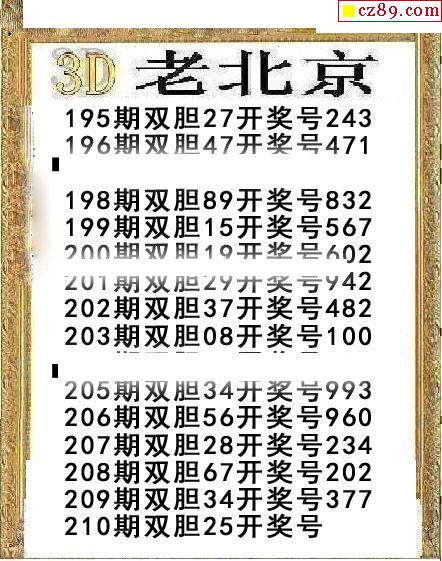 cz89.com
3D 老北京
195期双胆27开奖号243
196期双胆47开奖号471
198期双胆89开奖号832
199期双胆15开奖号567
200期双胆19开奖号602
201期双胆29开奖号942
202期双胆37开奖号482
203期双胆08开奖号100
205期双胆34开奖号993
206期双胆56开奖号960
207期双胆28开奖号234
208期双胆67开奖号202
209期双胆34开奖号377
210期双胆25开奖号